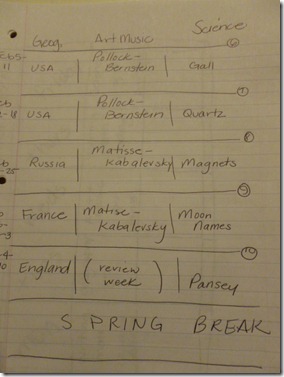 Geog. Art Music Science
6
USA Pollock- Gall
Bernstein
7
USA Pollock- Quartz
Bernstein
8
Russia Matisse- Magnets
Kabalevsky
9
France Matise- Moon
Kabalevsky Names
10
England (review Pansey
week)
SPRING BREAK